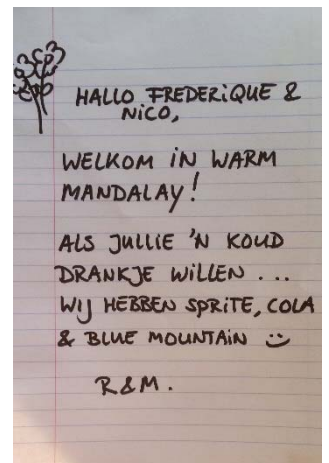 HALLO FREDERIQUE &
NICO,
WELKOM IN WARM
MANDALAY!
ALS JULLIE 'N KOUD
DRANKJE WILLEN ...
WIJ HEBBEN SPRITE, COLA
& BLUE MOUNTAIN :)
R&M.